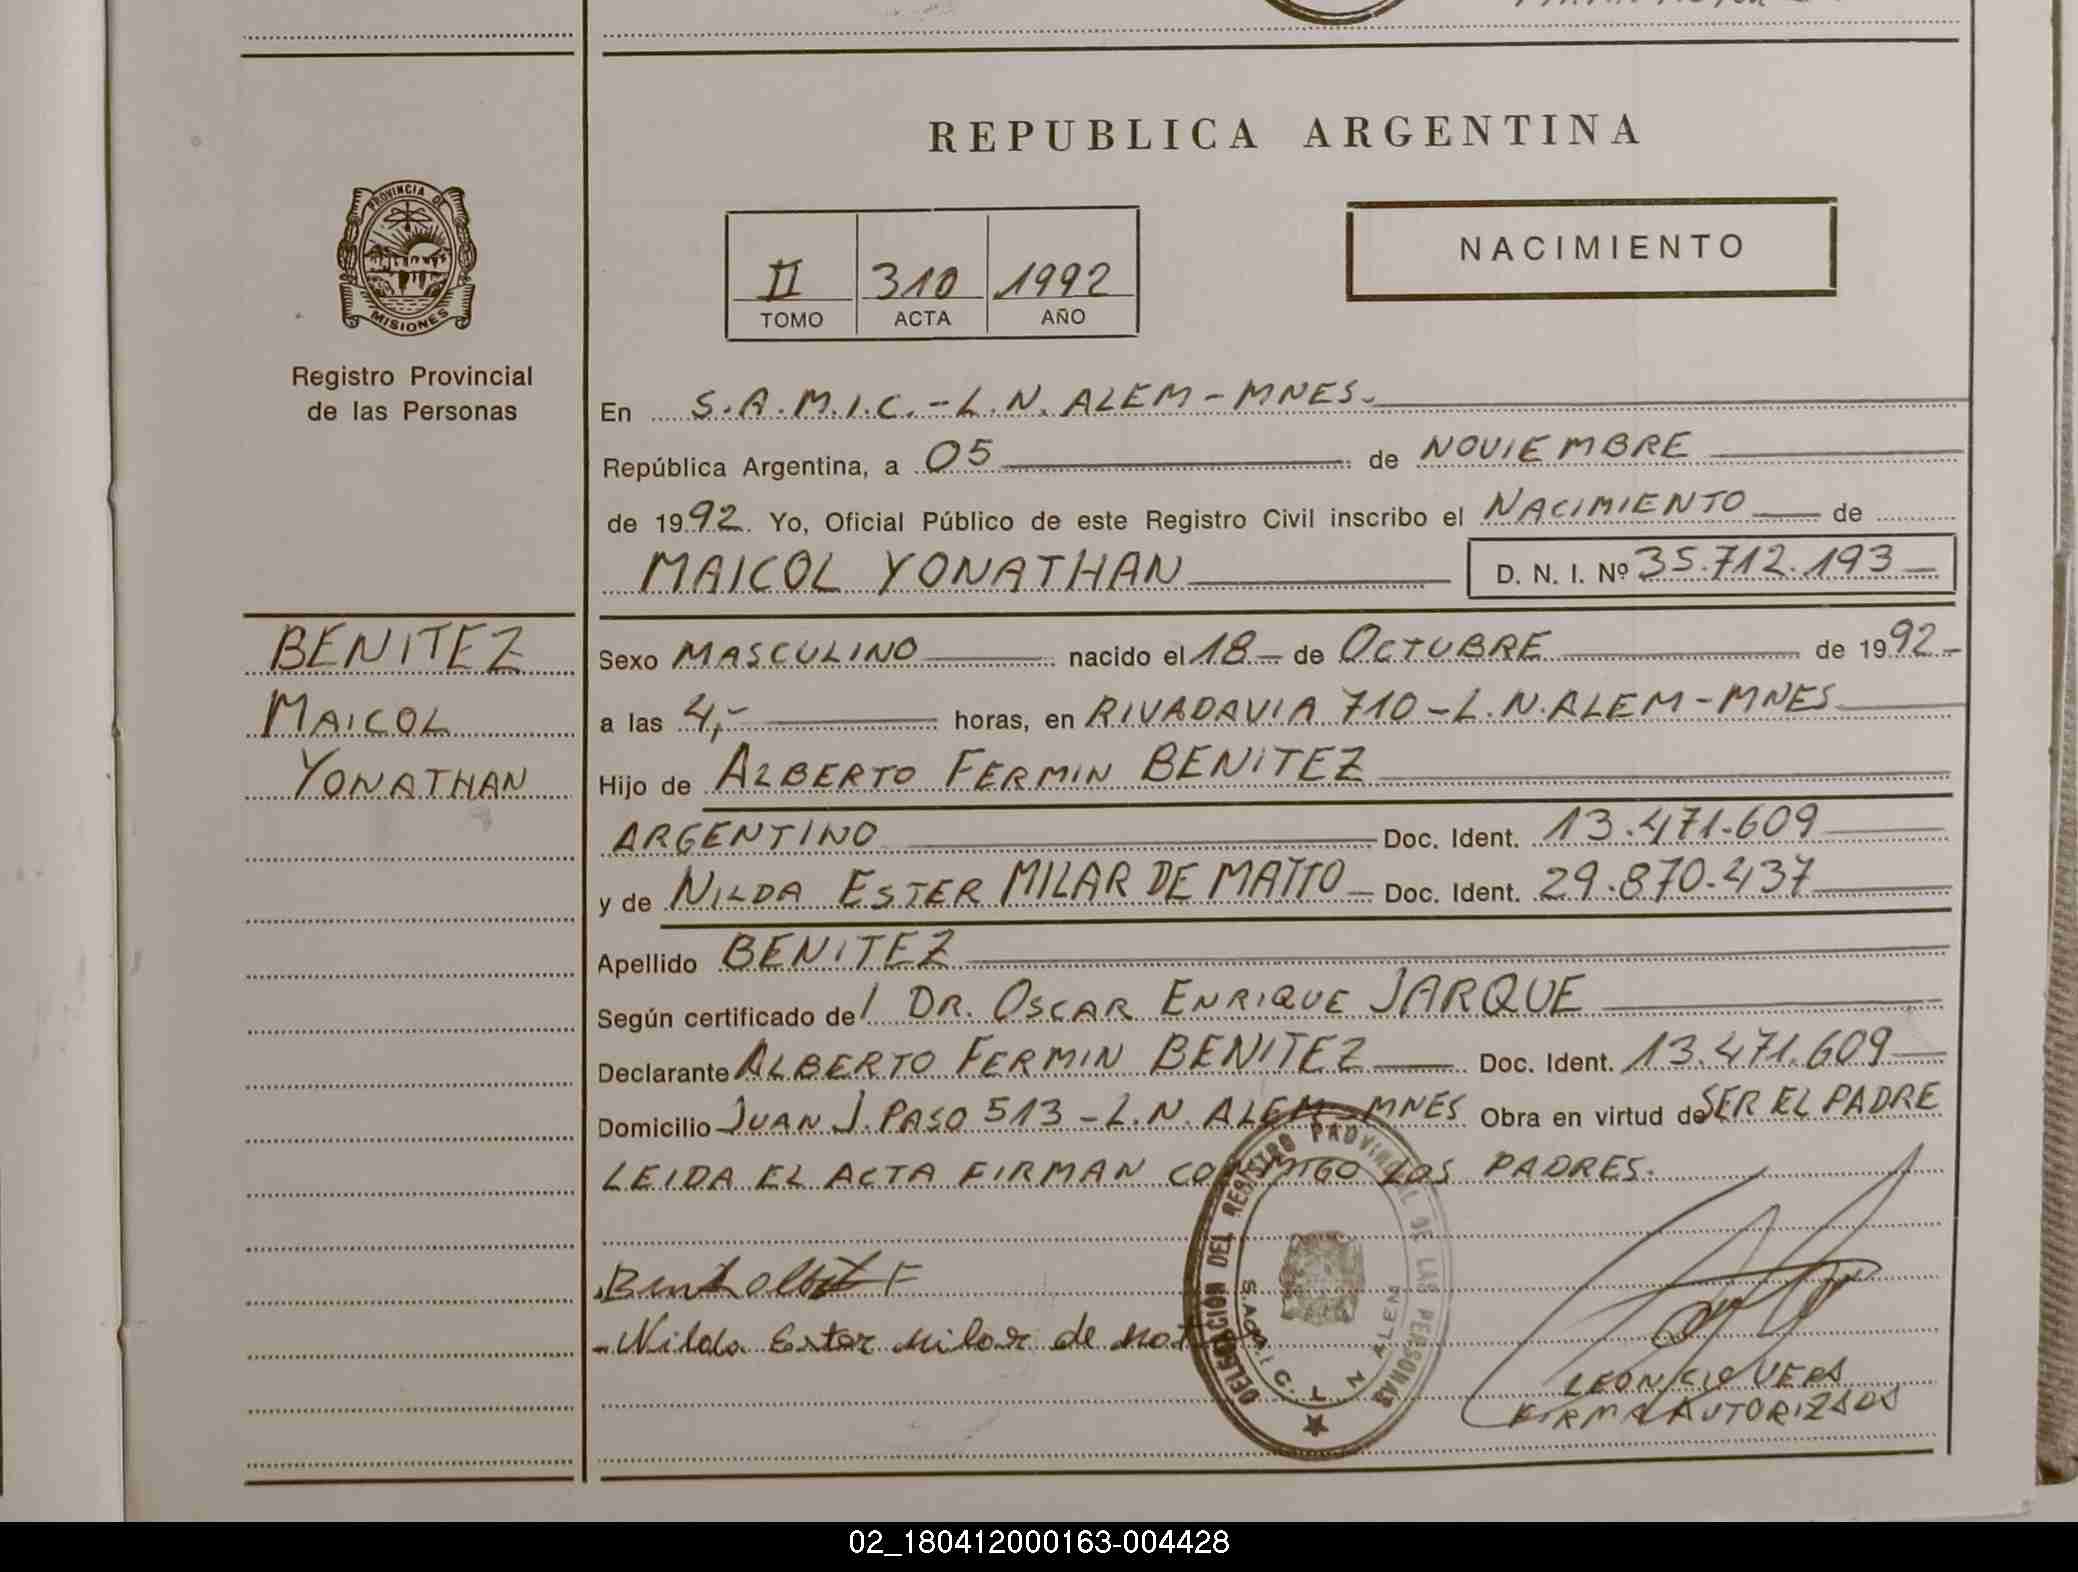 REPUBLICA ARGENTINA
PROVINCIA DE
MISIONES
Registro Provincial
de las Personas
II 310 1992
TOMO ACTA AÑO
NACIMIENTO
En S.A.M.I.C.-L.N. ALEM-MNES.
República Argentina, a 05 de NOVIEMBRE
de 1992. Yo, Oficial Público de este Registro Civil inscribo el NACIMIENTO de
MAICOL YONATHAN D. N. I. Nº 35.712.193
BENITEZ
MAICOL
YONATHAN
Sexo MASCULINO nacido el 18 de OCTUBRE de 1992.-
a las 4,- horas, en RIVADAVIA 710-L.N.ALEM-MNES
Hijo de ALBERTO FERMIN BENITEZ
ARGENTINO Doc. Ident. 13.471.609
y de NILDA ESTER MILAR DE MATTO Doc. Ident. 29.870.437
Apellido BENITEZ
Según certificado del DR. OSCAR ENRIQUE JARQUE
Declarante ALBERTO FERMIN BENITEZ Doc. Ident. 13.471.609
Domicilio JUAN J. PASO 513-L.N. ALEM-MNES Obra en virtud de SER EL PADRE
LEIDA EL ACTA FIRMAN CONMIGO LOS PADRES.
Nilda Ester Milar de
DELEGACION DEL REGISTRO PROVINCIAL DE LAS PERSONAS
S.A.M.I.C. L N ALEM
LEONCIO VERA
FIRMA AUTORIZADA
02_180412000163-004428